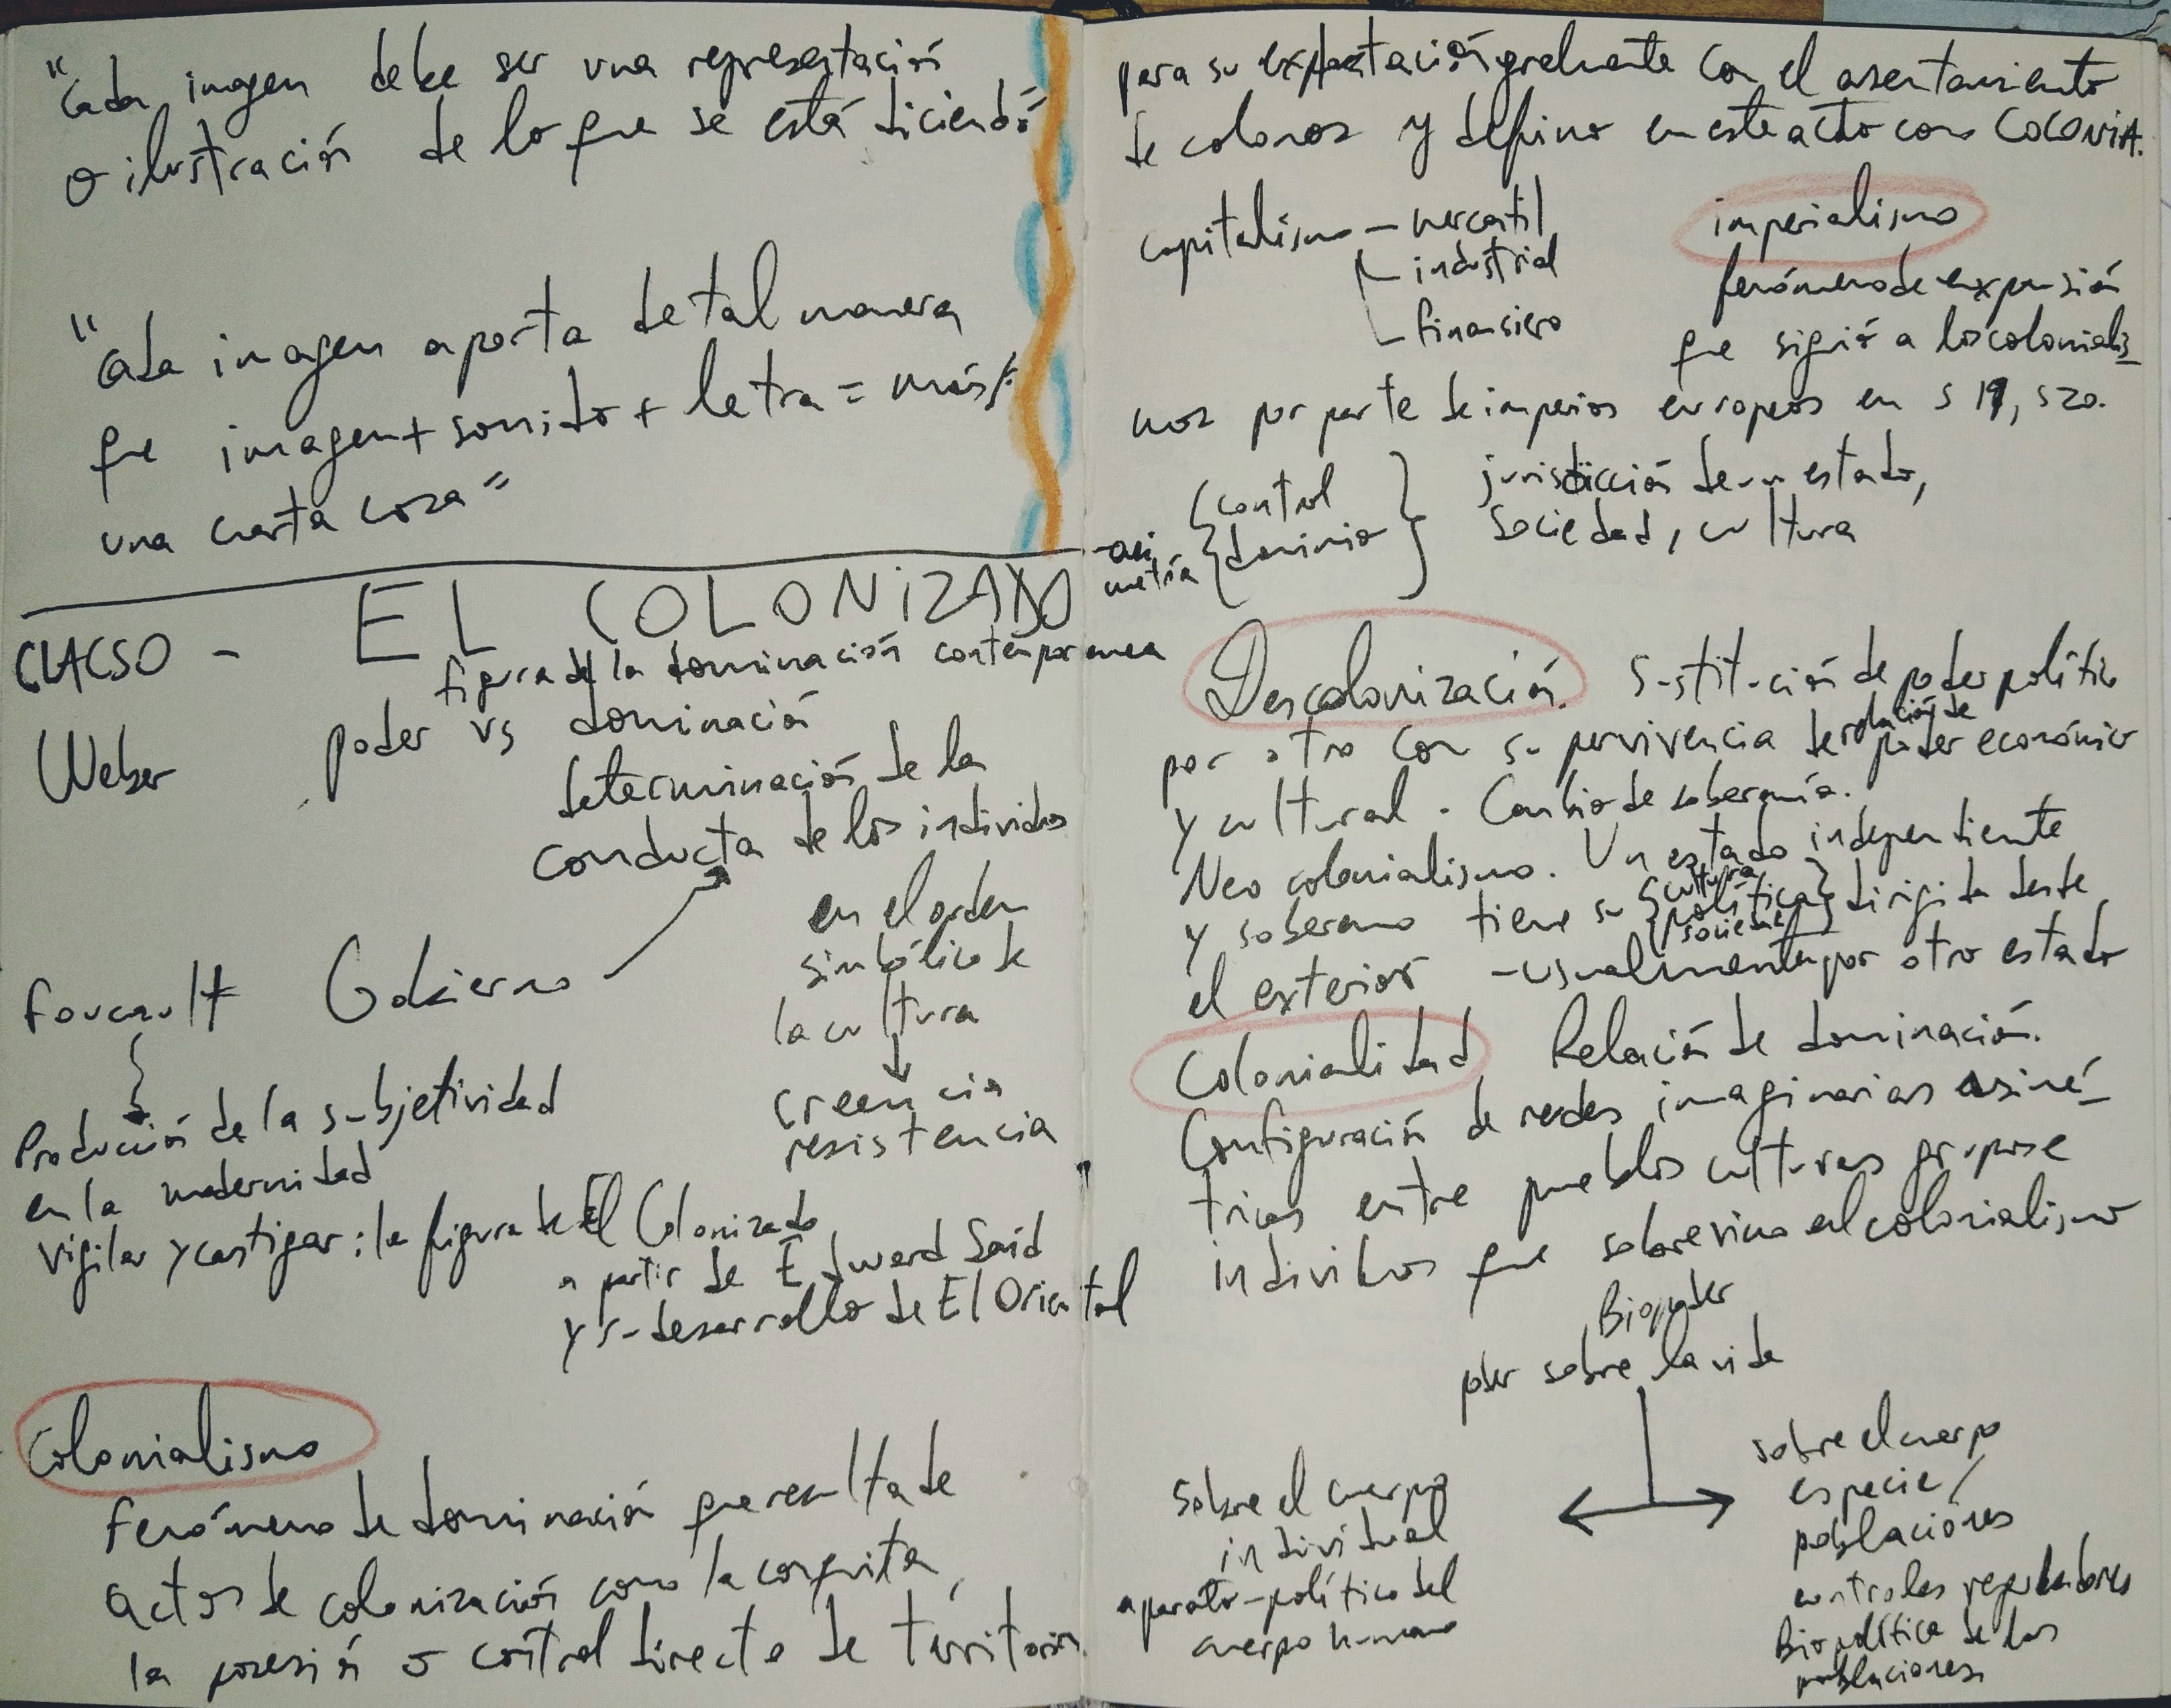 "Cada imagen debe ser una representación
o ilustración de lo que se está diciendo"
"Cada imagen aporta de tal manera
que imagen + sonido + letra = más/:
una cuarta cosa"
CLACSO - EL COLONIZADO
figura de la dominación contemporanea
Weber poder vs dominación
determinación de la
conducta de los individuos
en el orden
simbólico de
la cultura
Foucault Gobierno
creencia
resistencia
Producción de la subjetividad
en la modernidad
Vigilar y castigar: la figura de El Colonizado
a partir de Edward Said
y su desarrollo de El Oriental
Colonialismo
Fenómeno de dominación que resulta de
actos de colonización como la conquista,
la posesión o control directo de territorios
para su explotación gralmente con el asentamiento
de colonos y defino en este acto como COLONIA.
capitalismo - mercantil
- industrial
- financiero
imperialismo
fenómeno de expansión
que siguió a los colonialis-
mos por parte de imperios europeos en s 19, s 20.
asi
metría
{control
dominio}
jurisdicción de un estado,
sociedad, cultura
Descolonización. Sustitución de poder político
por otro con su pervivencia de relación de poder económico
y cultural. Cambio de soberanía.
Neo colonialismo. Un estado independiente
y soberano tiene su {cultura política sociedad} dirigida desde
el exterior - usualmente por otro estado
Colonialidad Relación de dominación.
Configuración de redes imaginarias asimé-
tricas entre pueblos culturas grupos e
individuos que sobrevino al colonialismo
Biopoder
poder sobre la vida
sobre el cuerpo
individual
aparato-político del
cuerpo humano
sobre el cuerpo
especie/
poblaciones
controles reguladores
Biopolítica de las
poblaciones